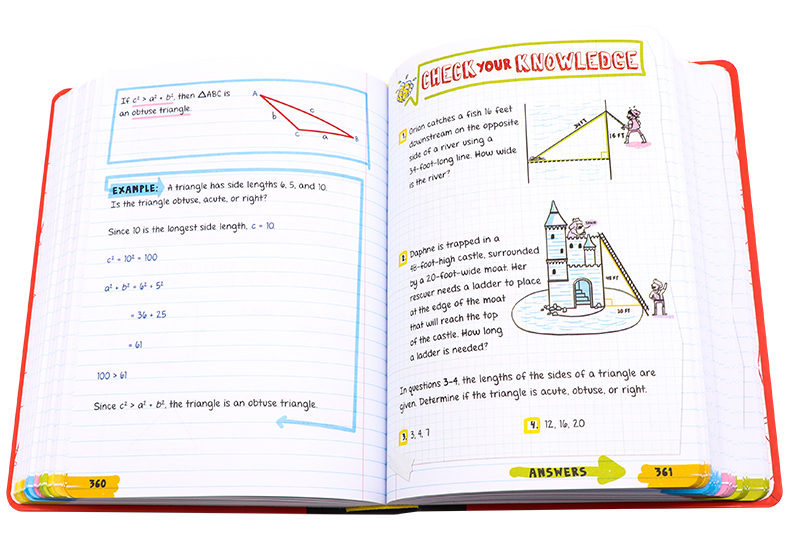 If c² > a² + b², then △ABC is
an obtuse triangle.
A
b
c
C
a
B
EXAMPLE: A triangle has side lengths 6, 5, and 10.
Is the triangle obtuse, acute, or right?
Since 10 is the longest side length, c = 10.
c² = 10² = 100
a² + b² = 6² + 5²
= 36 + 25
= 61
100 > 61
Since c² > a² + b², the triangle is an obtuse triangle.
360
CHECK YOUR KNOWLEDGE
1. Orion catches a fish 16 feet
downstream on the opposite
side of a river using a
34-foot-long line. How wide
is the river?
34 FT
16 FT
2. Daphne is trapped in a
48-foot-high castle, surrounded
by a 20-foot-wide moat. Her
rescuer needs a ladder to place
at the edge of the moat
that will reach the top
of the castle. How long
a ladder is needed?
48 FT
20 FT
In questions 3-4, the lengths of the sides of a triangle are
given. Determine if the triangle is acute, obtuse, or right.
3. 3, 4, 7
4. 12, 16, 20
ANSWERS
361